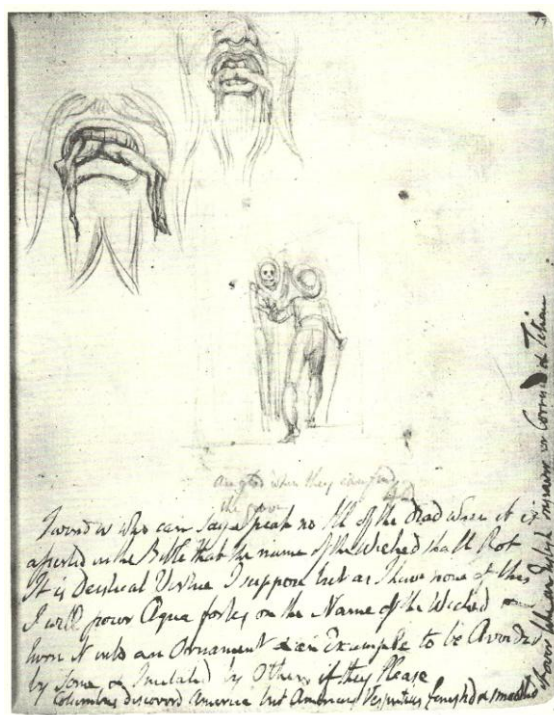 are glad when they can find
the grave
who can say Speak no Ill of the Dead when it is
asserted in the Bible that the name of the Wicked shall Rot
It is Deistical Virtue I suppose but as I have none of this
I will pour Aqua fortis on the Name of the Wicked &
turn it into an Ornament & an Example to be Avoided
by Some & Imitated by Others if they Please
Columbus discoverd America but Americus Vesputius finishd & smoothd
it over like an English Engraver or Corregio & Titian